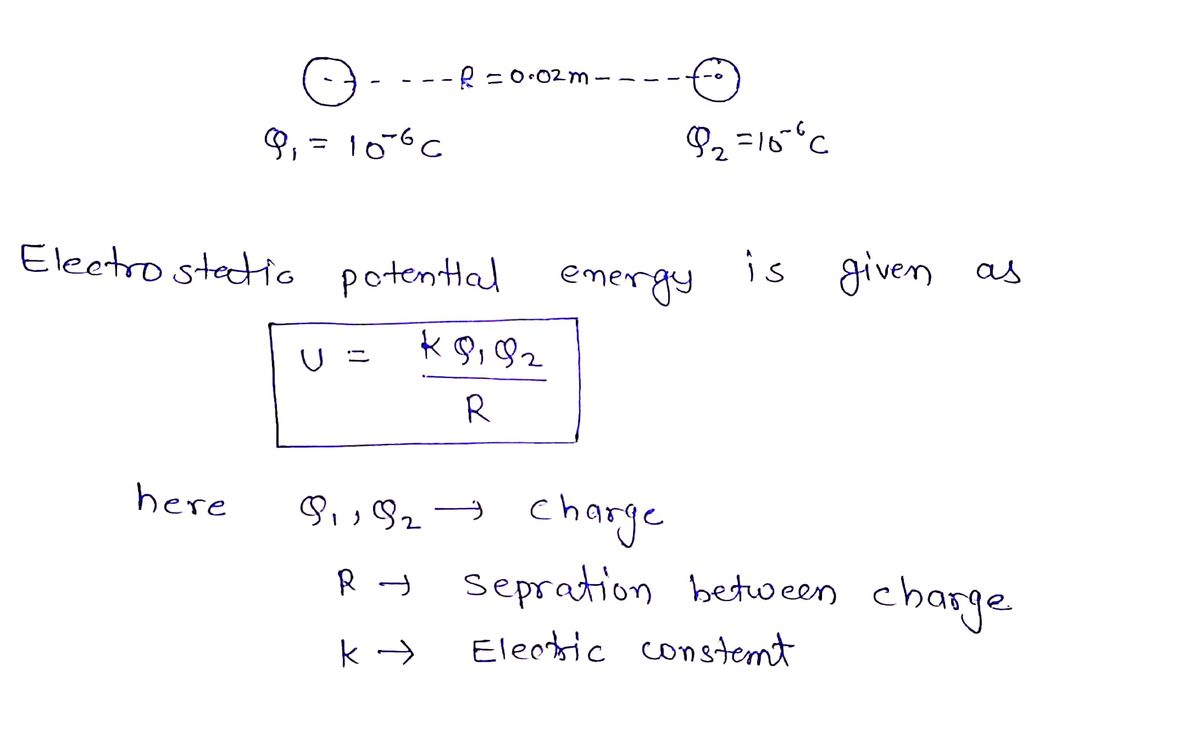 - - - - R = 0.02m - - - - -
Q₁ = 10⁻⁶ C Q₂ = 10⁻⁶ C
Electrostatic potential energy is given as
U = k Q₁ Q₂
R
here Q₁, Q₂ → charge
R → Sepration between charge
k → Electric constant